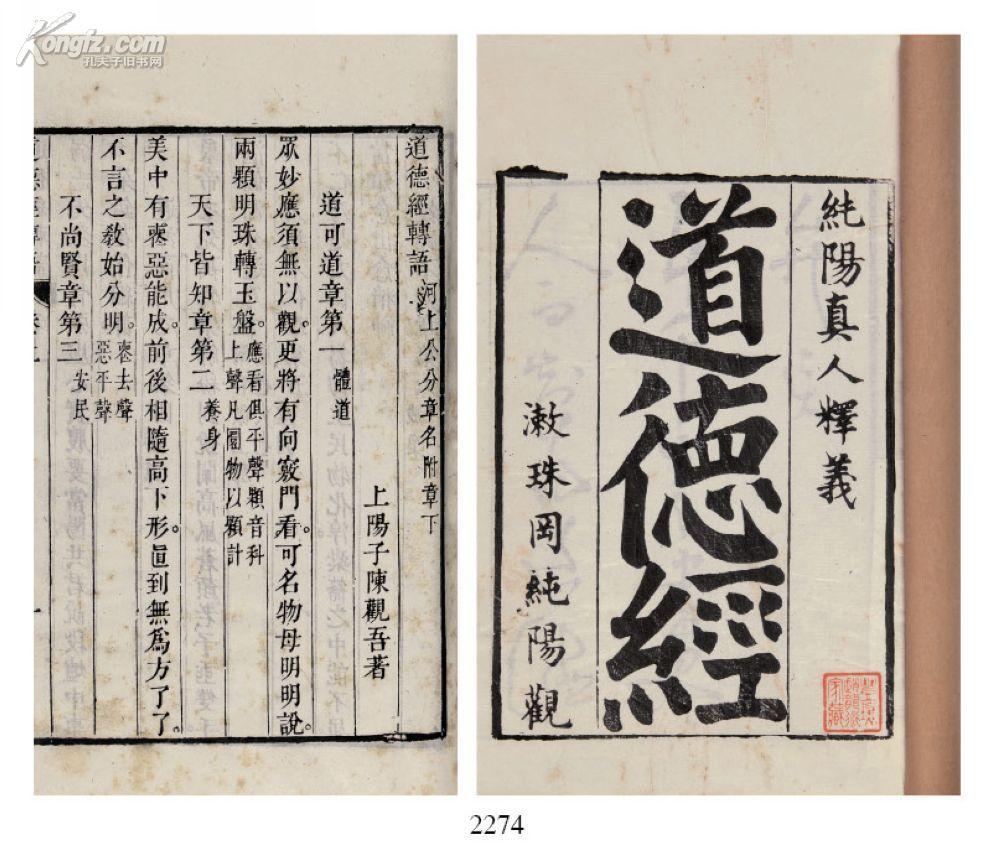 Kongfz.com
孔夫子旧书网
純陽真人釋義
道德經
漱珠岡純陽觀
道德經轉語 河上公分章名附章下
上陽子陳觀吾著
道可道章第一 體道
眾妙應須無以觀更將有向竅門看。可名物母明明說。
兩顆明珠轉玉盤。應看俱平聲顆音科
上聲凡圓物以顆計
天下皆知章第二 養身
美中有惡惡能成。前後相隨高下形。直到無爲方了了。
不言之敎始分明。惡去聲
惡平聲
不尚賢章第三 安民
2274